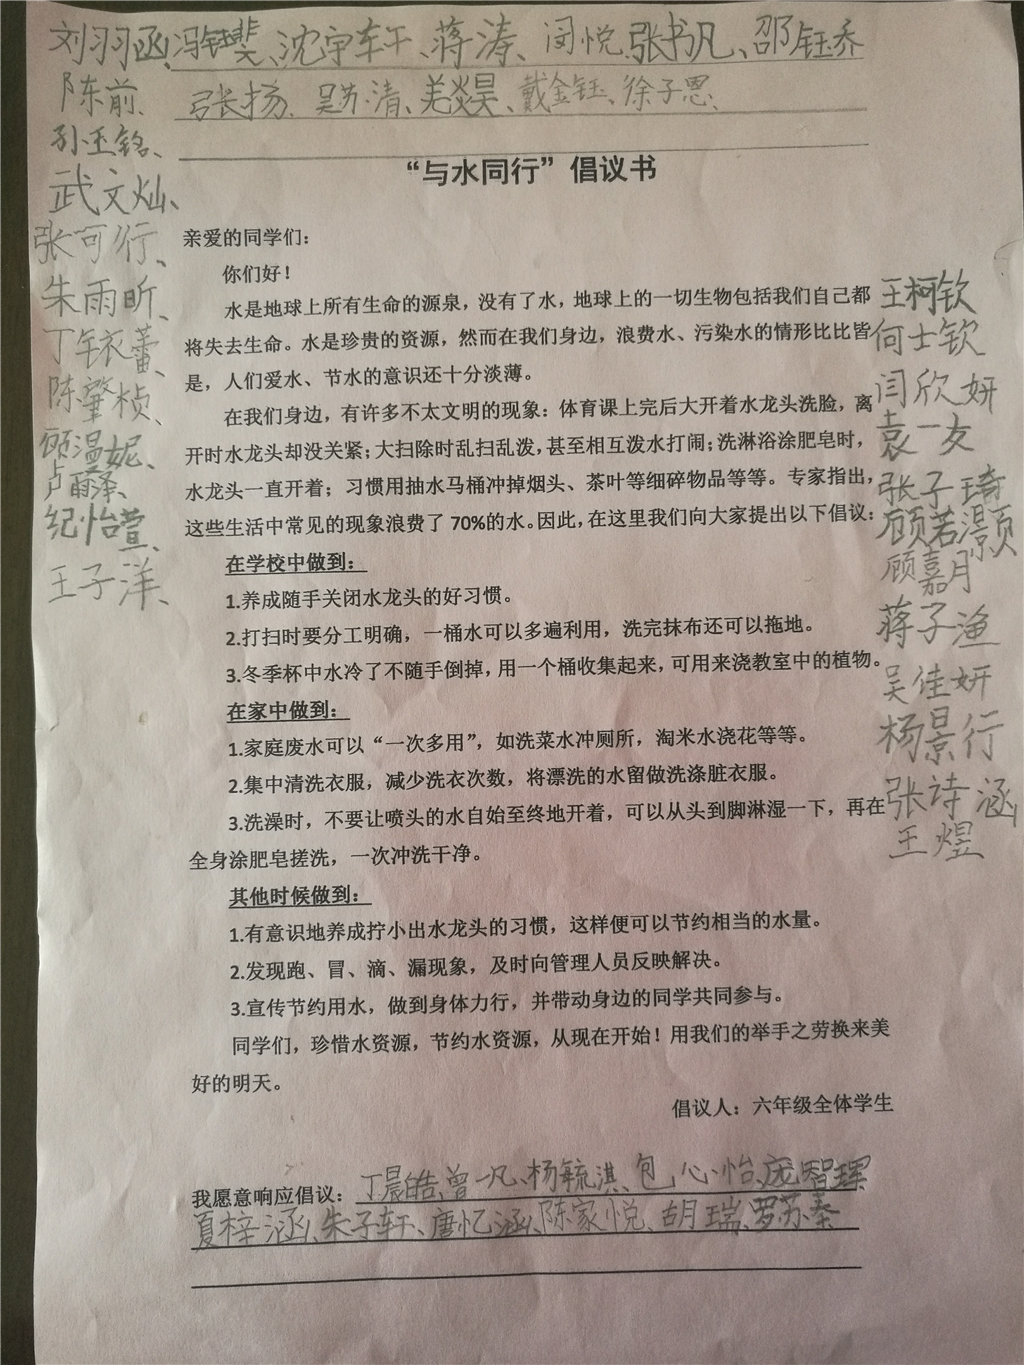 刘羽函、冯钰斐、沈宇轩、蒋涛、闵悦、张书凡、邵钰乔
陈前、
张扬、吴苏清、羌焱昊、戴金钰、徐子恩、
孙玉铭、
武文灿、
张可行、
朱雨昕、
丁钰蕾、
陈肇桢
顾漫妮、
卢雨泽、
纪怡萱、
王子洋、
“与水同行”倡议书
亲爱的同学们：
你们好！
水是地球上所有生命的源泉，没有了水，地球上的一切生物包括我们自己都
将失去生命。水是珍贵的资源，然而在我们身边，浪费水、污染水的情形比比皆
是，人们爱水、节水的意识还十分淡薄。
在我们身边，有许多不太文明的现象：体育课上完后大开着水龙头洗脸，离
开时水龙头却没关紧；大扫除时乱扫乱泼，甚至相互泼水打闹；洗淋浴涂肥皂时，
水龙头一直开着；习惯用抽水马桶冲掉烟头、茶叶等细碎物品等等。专家指出，
这些生活中常见的现象浪费了 70%的水。因此，在这里我们向大家提出以下倡议：
在学校中做到：
1.养成随手关闭水龙头的好习惯。
2.打扫时要分工明确，一桶水可以多遍利用，洗完抹布还可以拖地。
3.冬季杯中水冷了不随手倒掉，用一个桶收集起来，可用来浇教室中的植物。
在家中做到：
1.家庭废水可以“一次多用”，如洗菜水冲厕所，淘米水浇花等等。
2.集中清洗衣服，减少洗衣次数，将漂洗的水留做洗涤脏衣服。
3.洗澡时，不要让喷头的水自始至终地开着，可以从头到脚淋湿一下，再在
全身涂肥皂搓洗，一次冲洗干净。
其他时候做到：
1.有意识地养成拧小出水龙头的习惯，这样便可以节约相当的水量。
2.发现跑、冒、滴、漏现象，及时向管理人员反映解决。
3.宣传节约用水，做到身体力行，并带动身边的同学共同参与。
同学们，珍惜水资源，节约水资源，从现在开始！用我们的举手之劳换来美
好的明天。
倡议人：六年级全体学生
王柯钦
何士钦
闫欣妍
袁一友
张子琦
顾若灏
顾嘉月
蒋子渔
吴佳妍
杨景行
张诗涵
王煜
我愿意响应倡议：丁晨皓、曾一凡、杨毓淇、包心怡、庞智珲
夏梓涵、朱子轩、唐忆涵、陈家悦、胡瑞、罗苏秦